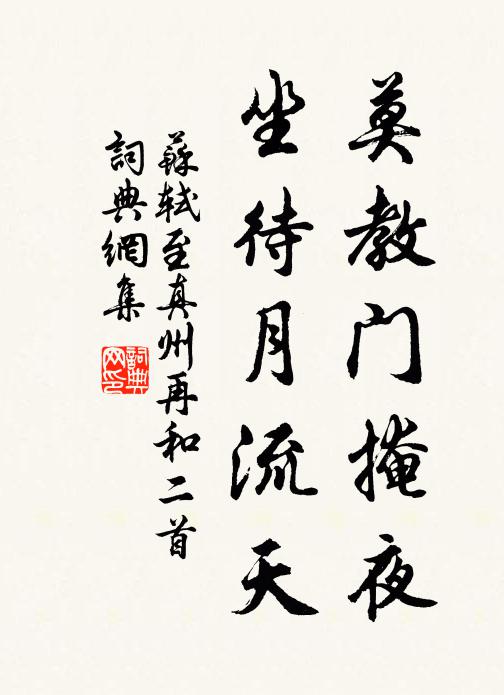 莫教门掩夜
坐待月流天
蘇軾至真州再和二首
詞典網集
詞典网印